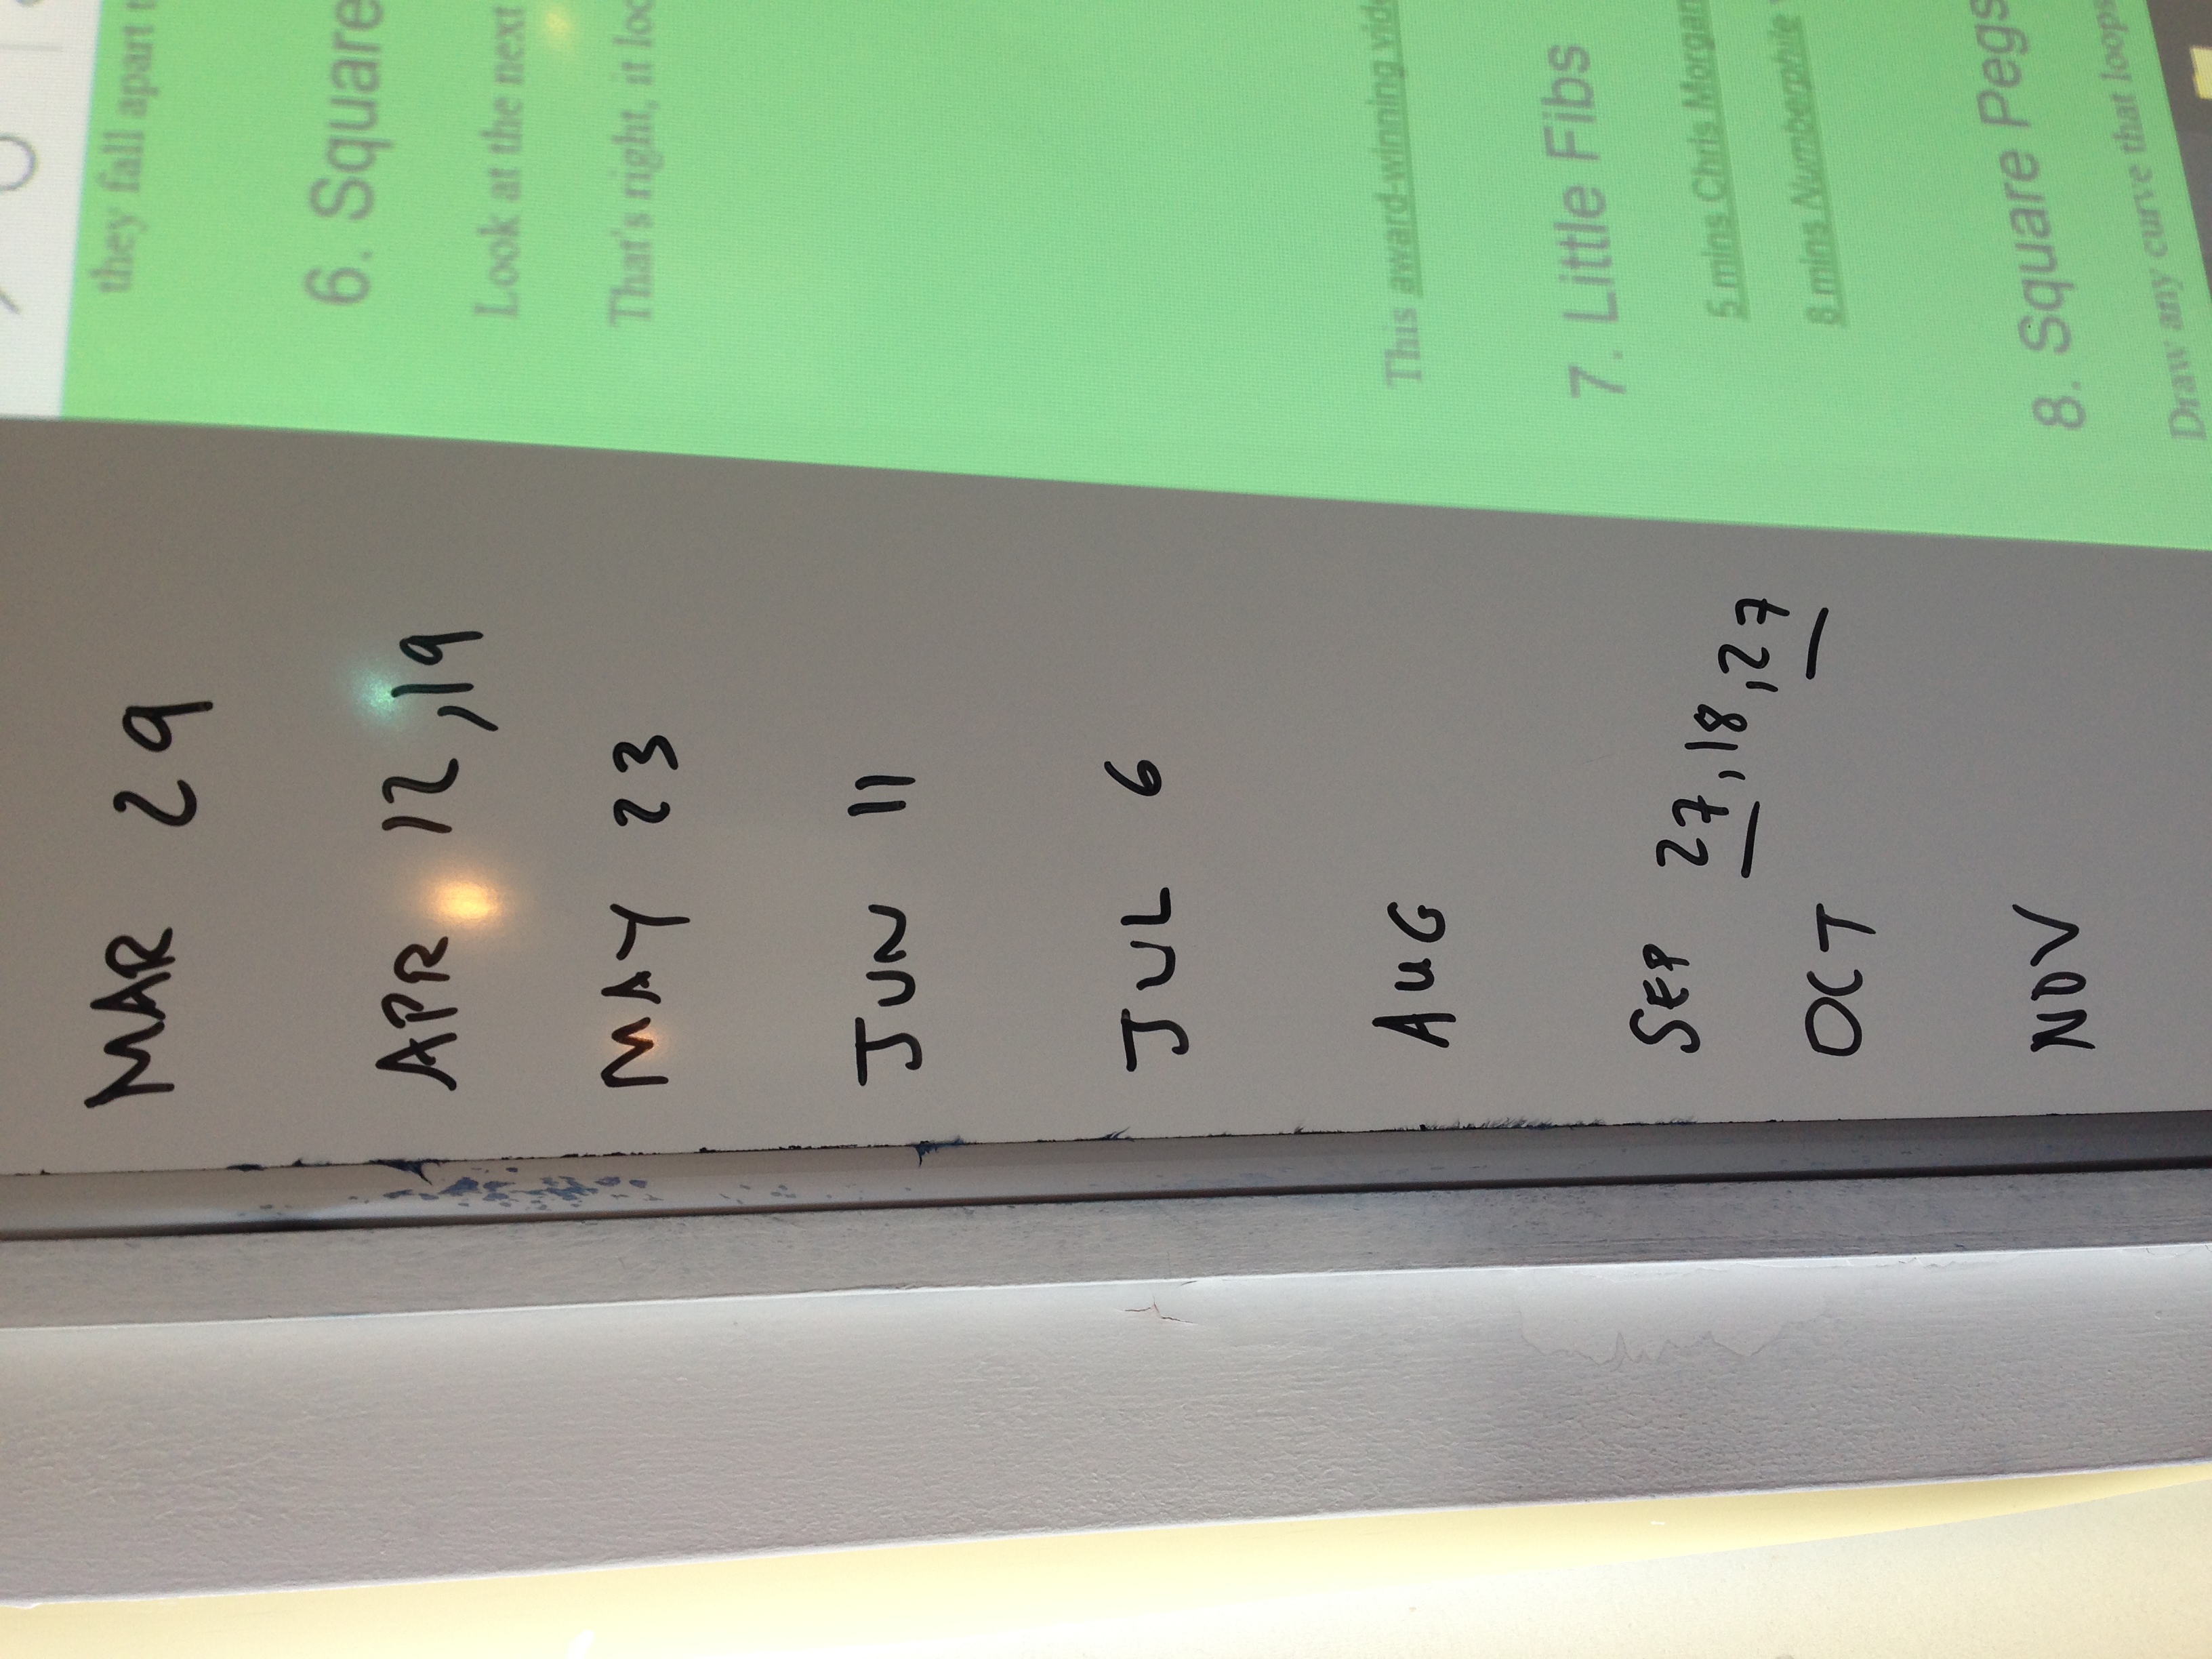 they fall apart t
6. Square
Look at the next
That's right, it loo
This award-winning vide
7. Little Fibs
5 mins Chris Morgan
8 mins Numberphile
8. Square Pegs
Draw any curve that loops
MAR 29
APR 12, 19
MAY 23
JUN 11
JUL 6
AUG
SEP 27, 18, 27
OCT
NOV